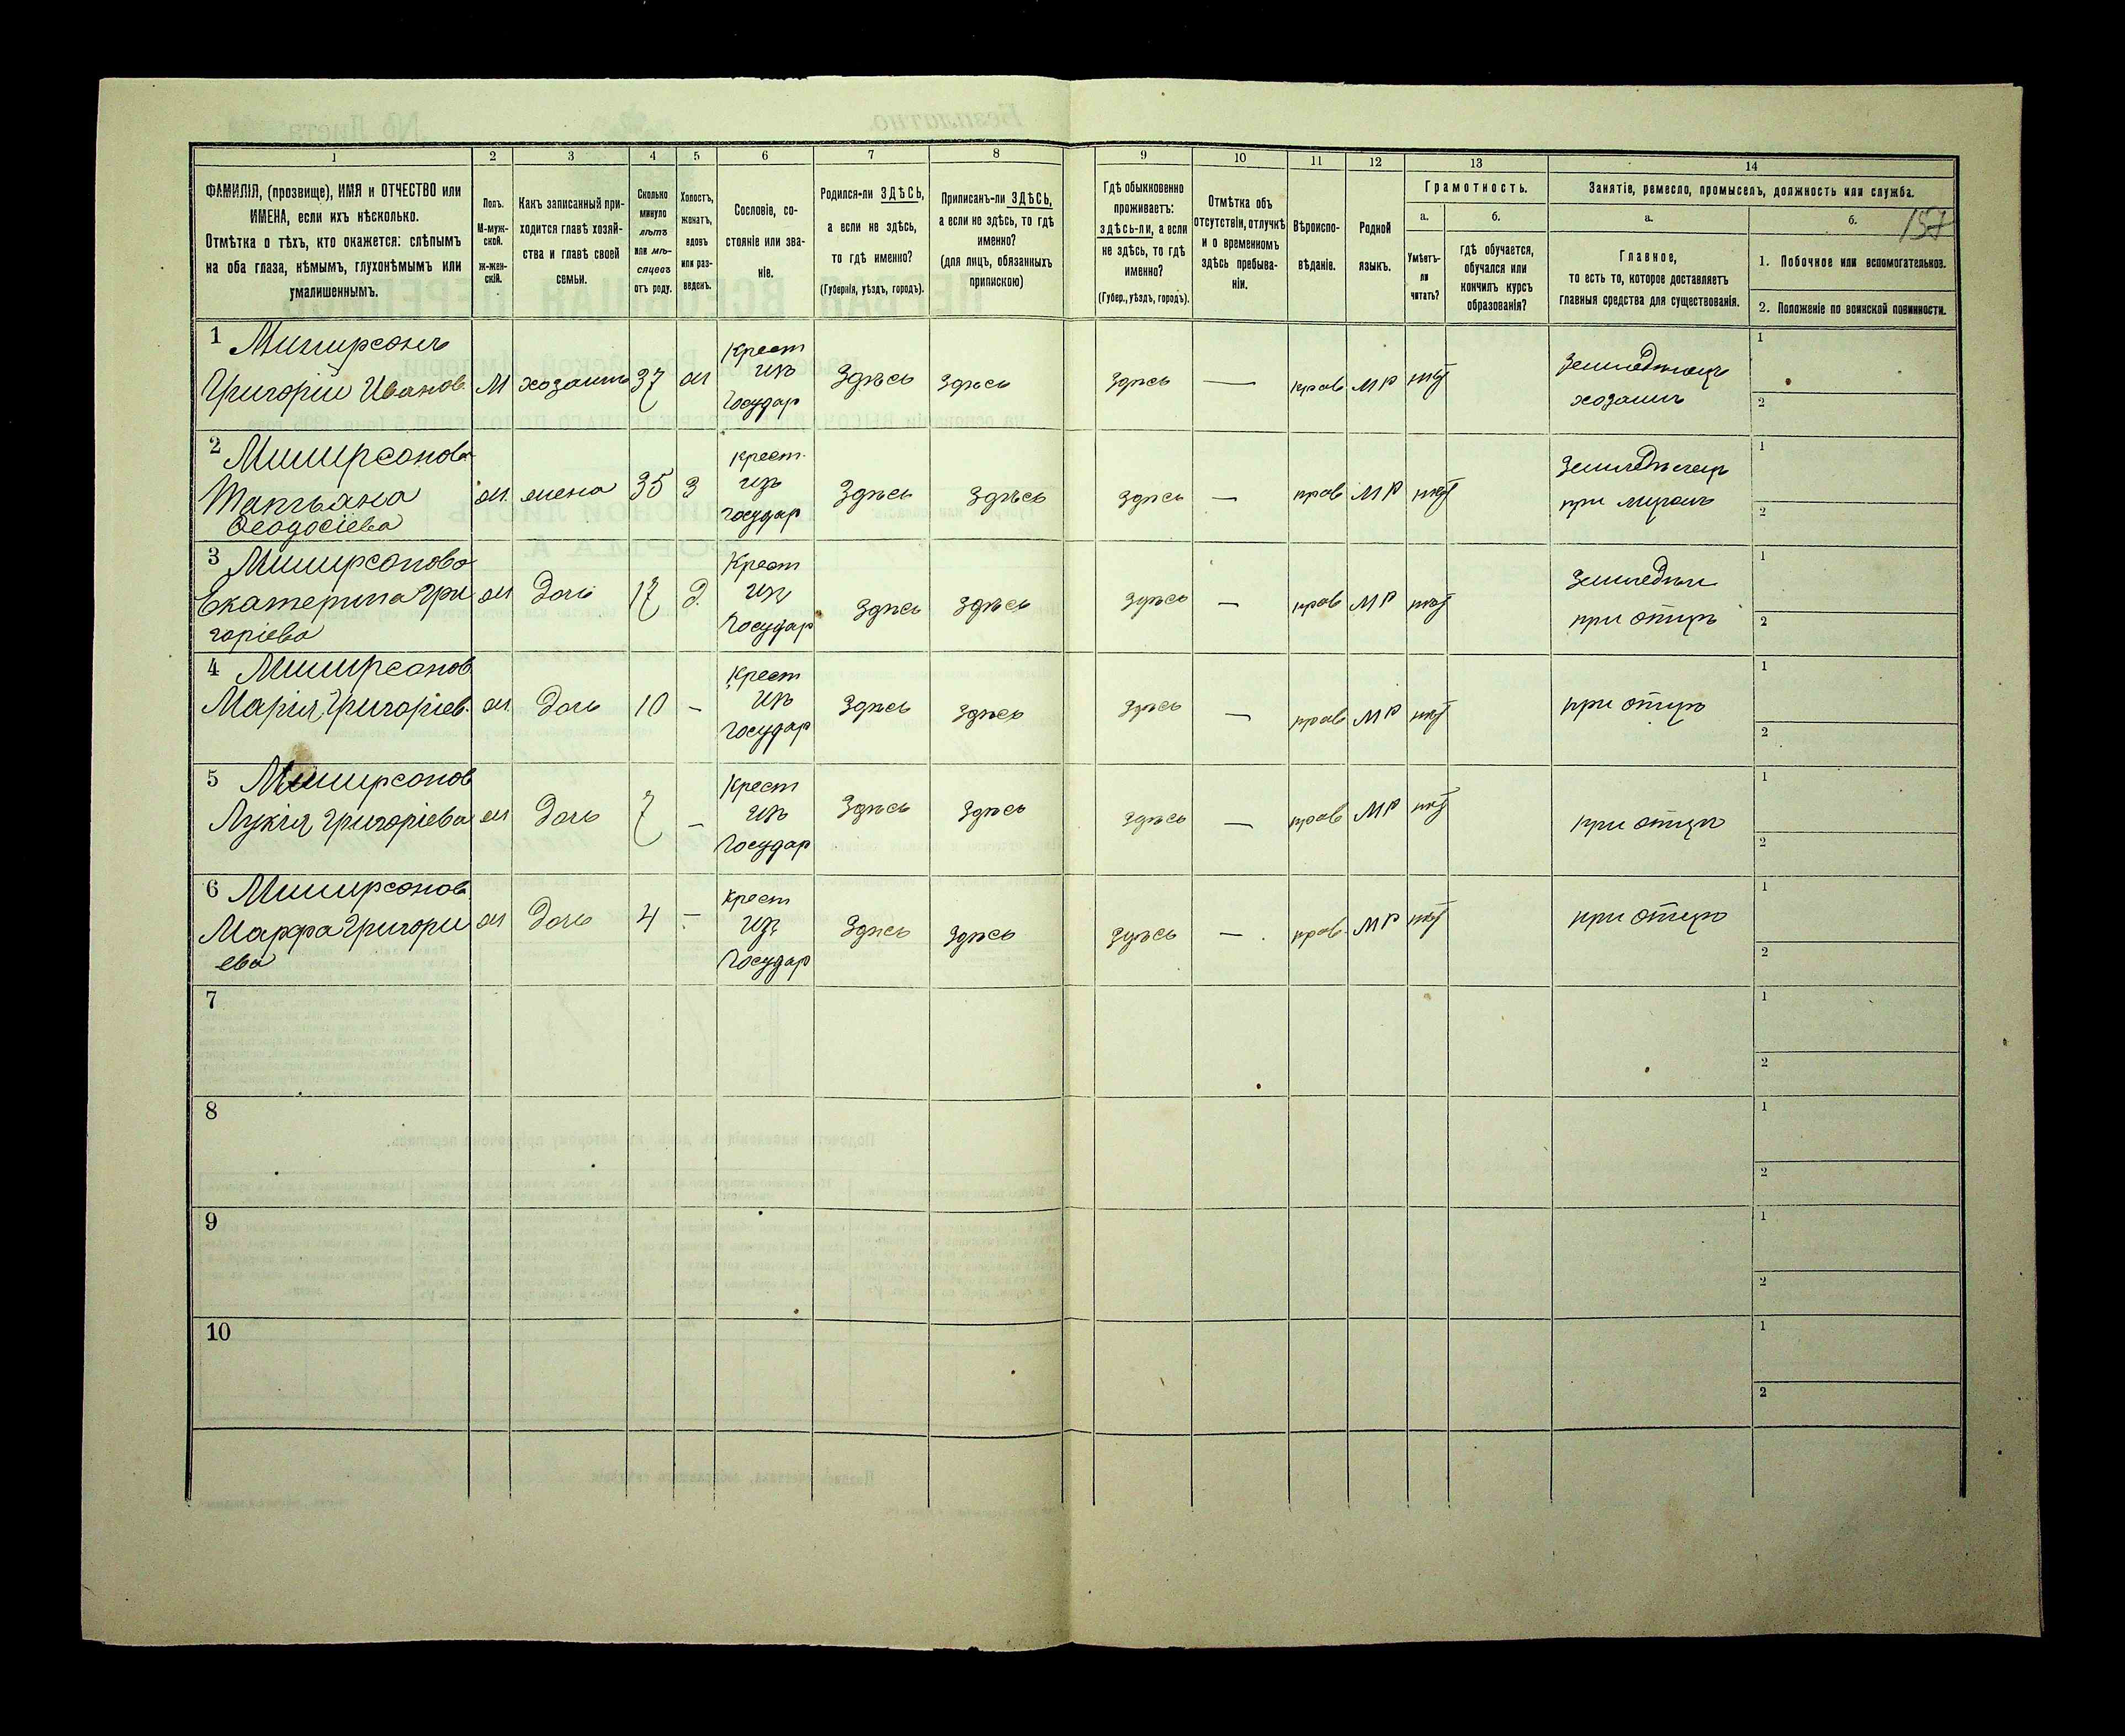 1 2 3 4 5 6 7 8 9 10 11 12 13 14
ФАМИЛІЯ, (прозвище), ИМЯ и ОТЧЕСТВО или
ИМЕНА, если ихъ нѣсколько.
Отмѣтка о тѣхъ, кто окажется: слѣпымъ
на оба глаза, нѣмымъ, глухонѣмымъ или
умалишеннымъ.
Полъ.
М-муж-
ской.
Ж-жен-
скій.
Какъ записанный при-
ходится главѣ хозяй-
ства и главѣ своей
семьи.
Сколько
минуло
лѣтъ
или мѣ-
сяцевъ
отъ роду.
Холостъ,
женатъ,
вдовъ
или раз-
веденъ.
Сословіе, со-
стояніе или зва-
ніе.
Родился-ли ЗДѢСЬ,
а если не здѣсь,
то гдѣ именно?
(Губернія, уѣздъ, городъ).
Приписанъ-ли ЗДѢСЬ,
а если не здѣсь, то гдѣ
именно?
(для лицъ, обязанныхъ
припискою)
Гдѣ обыкновенно
проживаетъ:
здѣсь-ли, а если
не здѣсь, то гдѣ
именно?
(Губер., уѣздъ, городъ).
Отмѣтка объ
отсутствіи, отлучкѣ
и о временномъ
здѣсь пребыва-
ніи.
Вѣроиспо-
вѣданіе.
Родной
языкъ.
Грамотность.
а.
Умѣетъ-
ли
читать?
б.
гдѣ обучается,
обучался или
кончилъ курсъ
образованія?
Занятіе, ремесло, промыселъ, должность или служба.
а.
Главное,
то есть то, которое доставляетъ
главныя средства для существованія.
б.
157
1. Побочное или вспомогательное.
2. Положеніе по воинской повинности.
1
Григорій Иванов М хозаинъ 37 Крест изъ Государ Здѣсь Здѣсь Здѣсь — прав МР нѣт
хозаинъ
1
2
2
Татьана
Феодосіева
жена 35 З крест. изъ государ Здѣсь Здѣсь Здѣсь — прав МР нѣт
при мужѣ
1
2
3
Екатерина Гри
горіева
Дочь 17 Д. Крест изъ Государ Здѣсь Здѣсь Здѣсь — прав МР нѣт
при отцѣ
1
2
4
Марія Григоріев. Дочь 10 — Крест изъ Государ Здѣсь Здѣсь Здѣсь — прав МР нѣт при отцѣ
1
2
5
Лукія Григоріева Дочь 7 — Крест изъ Государ Здѣсь Здѣсь Здѣсь — прав МР нѣт при отцѣ
1
2
6
Марфа Григори
ева
Дочь 4 — Крест изъ Государ Здѣсь Здѣсь Здѣсь — прав. МР нѣт при отцѣ
1
2
7
1
2
8
1
2
9
1
2
10
1
2